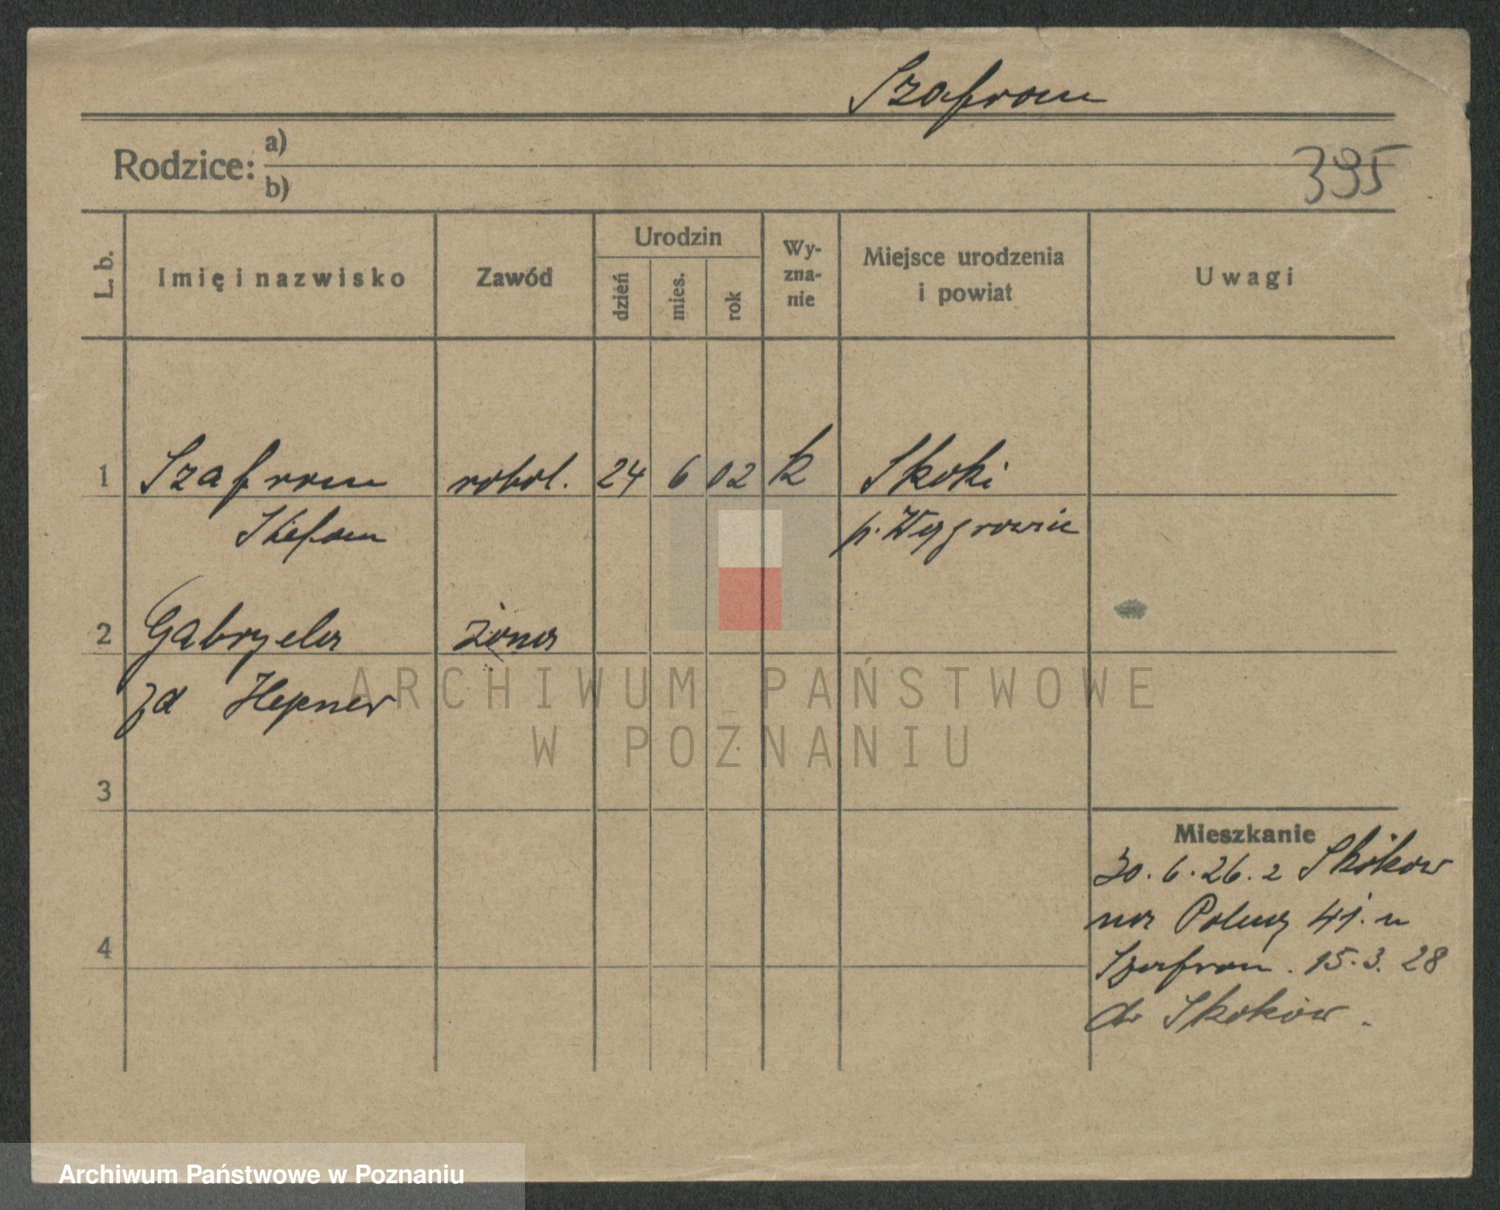 Szafran
Rodzice: a)
b)
395
L. b.
Imię i nazwisko
Zawód
Urodzin
dzień
mies.
rok
Wy-
zna-
nie
Miejsce urodzenia
i powiat
Uwagi
1 Szafran robot. 24 6 02 k Skoki
Stefan p. Wągrowiec
2 Gabryela żona
zd Hepner
3
4
Mieszkanie
30.6.26. z Skoków
na 41. u
Szafran. 15.3.28
do Skoków.
ARCHIWUM PAŃSTWOWE
W POZNANIU
Archiwum Państwowe w Poznaniu